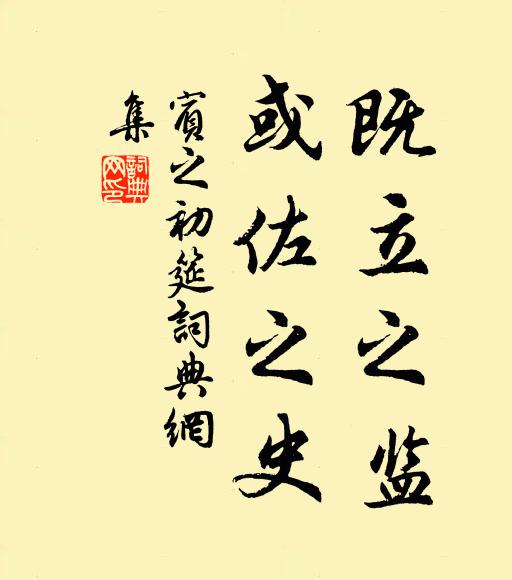 既立之监
或佐之史
賓之初筵詞典網
集
詞典網印